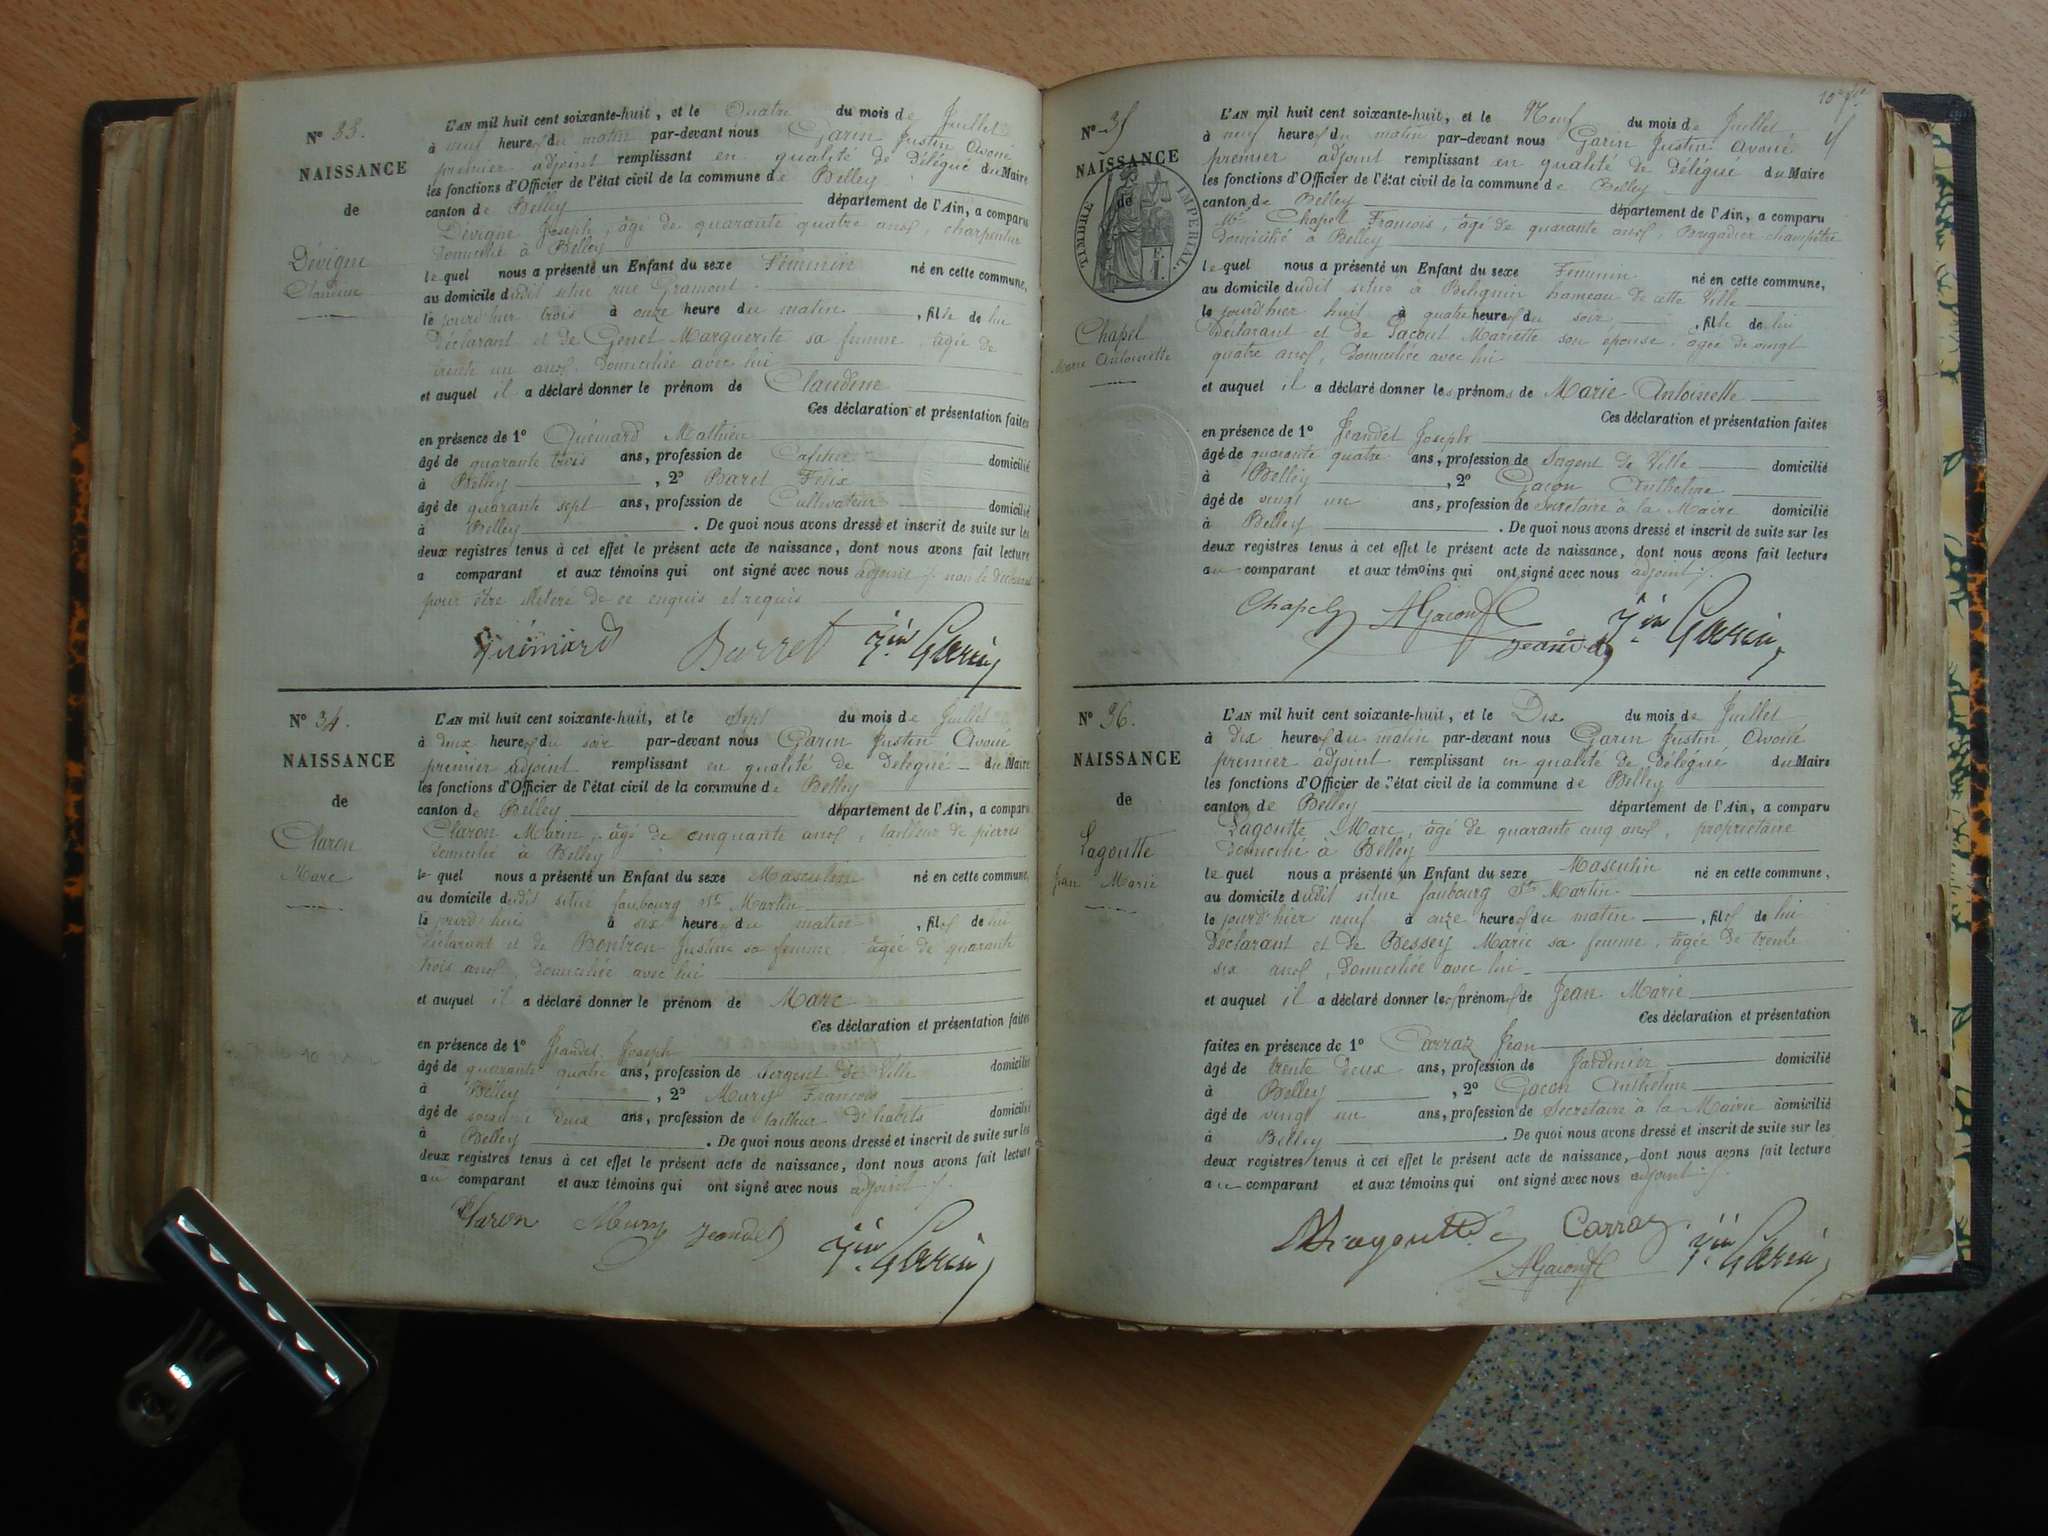 N° 33.
NAISSANCE
de
Dévigne
Claudine
L'AN mil huit cent soixante-huit, et le Quatre du mois de Juillet
à neuf heures du matin par-devant nous Garin Justin Avoué
premier adjoint remplissant en qualité de Délégué du Maire
les fonctions d'Officier de l'état civil de la commune de Belley
canton de Belley département de l'Ain, a comparu
Dévigne Joseph, âgé de quarante quatre ans, charpentier
domicilié à Belley
lequel nous a présenté un Enfant du sexe Féminin né en cette commune,
au domicile dudit situé rue Gramont
le jourd'hier trois à onze heure du matin, fille de lui
Déclarant et de Genet Marguerite sa femme, âgée de
trente un ans, domiciliée avec lui
et auquel il a déclaré donner le prénom de Claudine
Ces déclaration et présentation faites
en présence de 1° Guémard Mathieu
âgé de quarante trois ans, profession de domicilié
à Belley, 2° Baret Félix
âgé de quarante sept ans, profession de Cultivateur domicilié
à Belley. De quoi nous avons dressé et inscrit de suite sur les
deux registres tenus à cet effet le présent acte de naissance, dont nous avons fait lecture
a comparant et aux témoins qui ont signé avec nous adjoint non le déclarant
pour être illiteré de ce enquis et requis
Guémard Barret Jin Garin
N° 34.
NAISSANCE
de
Claron
Marc
L'AN mil huit cent soixante-huit, et le Sept du mois de Juillet
à deux heures du soir par-devant nous Garin Justin Avoué
premier adjoint remplissant en qualité de Délégué du Maire
les fonctions d'Officier de l'état civil de la commune de Belley
canton de Belley département de l'Ain, a comparu
Claron Marin, âgé de cinquante ans, tailleur de pierres
domicilié à Belley
lequel nous a présenté un Enfant du sexe Masculin né en cette commune,
au domicile dudit situé faubourg St Martin
le jourd'hui à six heures du matin, fils de lui
déclarant et de Bontron Justine sa femme, âgée de quarante
trois ans, domiciliée avec lui
et auquel il a déclaré donner le prénom de Marc
Ces déclaration et présentation faites
en présence de 1° Jeandet Joseph
âgé de quarante quatre ans, profession de Sergent de Ville domicilié
à Belley, 2° Mury François
âgé de soixante deux ans, profession de tailleur d'habits domicilié
à Belley. De quoi nous avons dressé et inscrit de suite sur les
deux registres tenus à cet effet le présent acte de naissance, dont nous avons fait lecture
au comparant et aux témoins qui ont signé avec nous adjoint
Claron Mury Jeandet Jin Garin
N° 35
NAISSANCE
de
TIMBRE IMPERIAL
Chapel
Marie Antoinette
L'AN mil huit cent soixante-huit, et le Neuf du mois de Juillet
à neuf heures du matin par-devant nous Garin Justin Avoué
premier adjoint remplissant en qualité de Délégué du Maire
les fonctions d'Officier de l'état civil de la commune de Belley
canton de Belley département de l'Ain, a comparu
Mr Chapel François, âgé de quarante ans, Brigadier champêtre
domicilié à Belley
lequel nous a présenté un Enfant du sexe Féminin né en cette commune,
au domicile dudit situé à Bélignin hameau de cette Ville
le jourd'hier huit à quatre heures du soir, fille de lui
Déclarant et de Pacout Mariette son épouse, âgée de vingt
quatre ans, domiciliée avec lui
et auquel il a déclaré donner les prénoms de Marie Antoinette
Ces déclaration et présentation faites
en présence de 1° Jeandet Joseph
âgé de quarante quatre ans, profession de Sergent de Ville domicilié
à Belley, 2° Gacon Anthelme
âgé de vingt un ans, profession de Secrétaire à la Mairie domicilié
à Belley. De quoi nous avons dressé et inscrit de suite sur les
deux registres tenus à cet effet le présent acte de naissance, dont nous avons fait lecture
au comparant et aux témoins qui ont signé avec nous adjoint
Chapel AGacon Jeandet Jin Garin
N° 36.
NAISSANCE
de
Lagoutte
Jean Marie
L'AN mil huit cent soixante-huit, et le Dix du mois de Juillet
à dix heures du matin par-devant nous Garin Justin Avoué
premier adjoint remplissant en qualité de Délégué du Maire
les fonctions d'Officier de l'état civil de la commune de Belley
canton de Belley département de l'Ain, a comparu
Lagoutte Marc, âgé de quarante cinq ans, propriétaire
domicilié à Belley
lequel nous a présenté un Enfant du sexe Masculin né en cette commune,
au domicile dudit situé faubourg St Martin
le jourd'hier neuf à onze heures du matin, fils de lui
Déclarant et de Bessey Marie sa femme, âgée de trente
six ans, domiciliée avec lui
et auquel il a déclaré donner les prénoms de Jean Marie
Ces déclaration et présentation
faites en présence de 1° Carraz Jean
âgé de trente deux ans, profession de Jardinier domicilié
à Belley, 2° Gacon Anthelme
âgé de vingt un ans, profession de Secrétaire à la Mairie domicilié
à Belley. De quoi nous avons dressé et inscrit de suite sur les
deux registres tenus à cet effet le présent acte de naissance, dont nous avons fait lecture
au comparant et aux témoins qui ont signé avec nous adjoint
MLagoutte Carraz AGacon Jin Garin